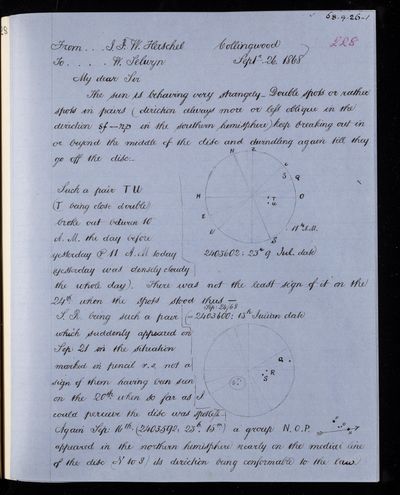 68.9.26-1
228
From . . . J. F. W. Herschel Collingwood
To . . . . . W. Selwyn Septr. 26. 1868
My dear Sir
The sun is behaving very strangely_ Double spots or rather
spots in pairs (direction always more or less oblique in the
direction sf—np in the southern hemisphere) keep breaking out in
or beyond the middle of the disc and dwindling again till they
go off the disc._
Such a pair T U
(T being close double)
broke out between 10
A. M. the day before
yesterday @ 11 A. M. today
yesterday was densely cloudy
the whole day). There was not the least sign of it on the
2403602: 23h 9 Jul. date
11h A.M.
24th when the spots stood thus —
Sep. 24/68
S. R. being such a pair (— 2403600: 13h Julian date
which suddenly appeared on
Sep 21 in the situation
marked in pencil r. s. not a
sign of them having been seen
on the 20th when so far as I
could perceive the disc was spotless
Again Sep: 14th. (2403592. 23h. 15m) a group N. O. P.
appeared in the northern hemisphere nearly on the medial line
of the disc (N to S) its direction being conformable to the law